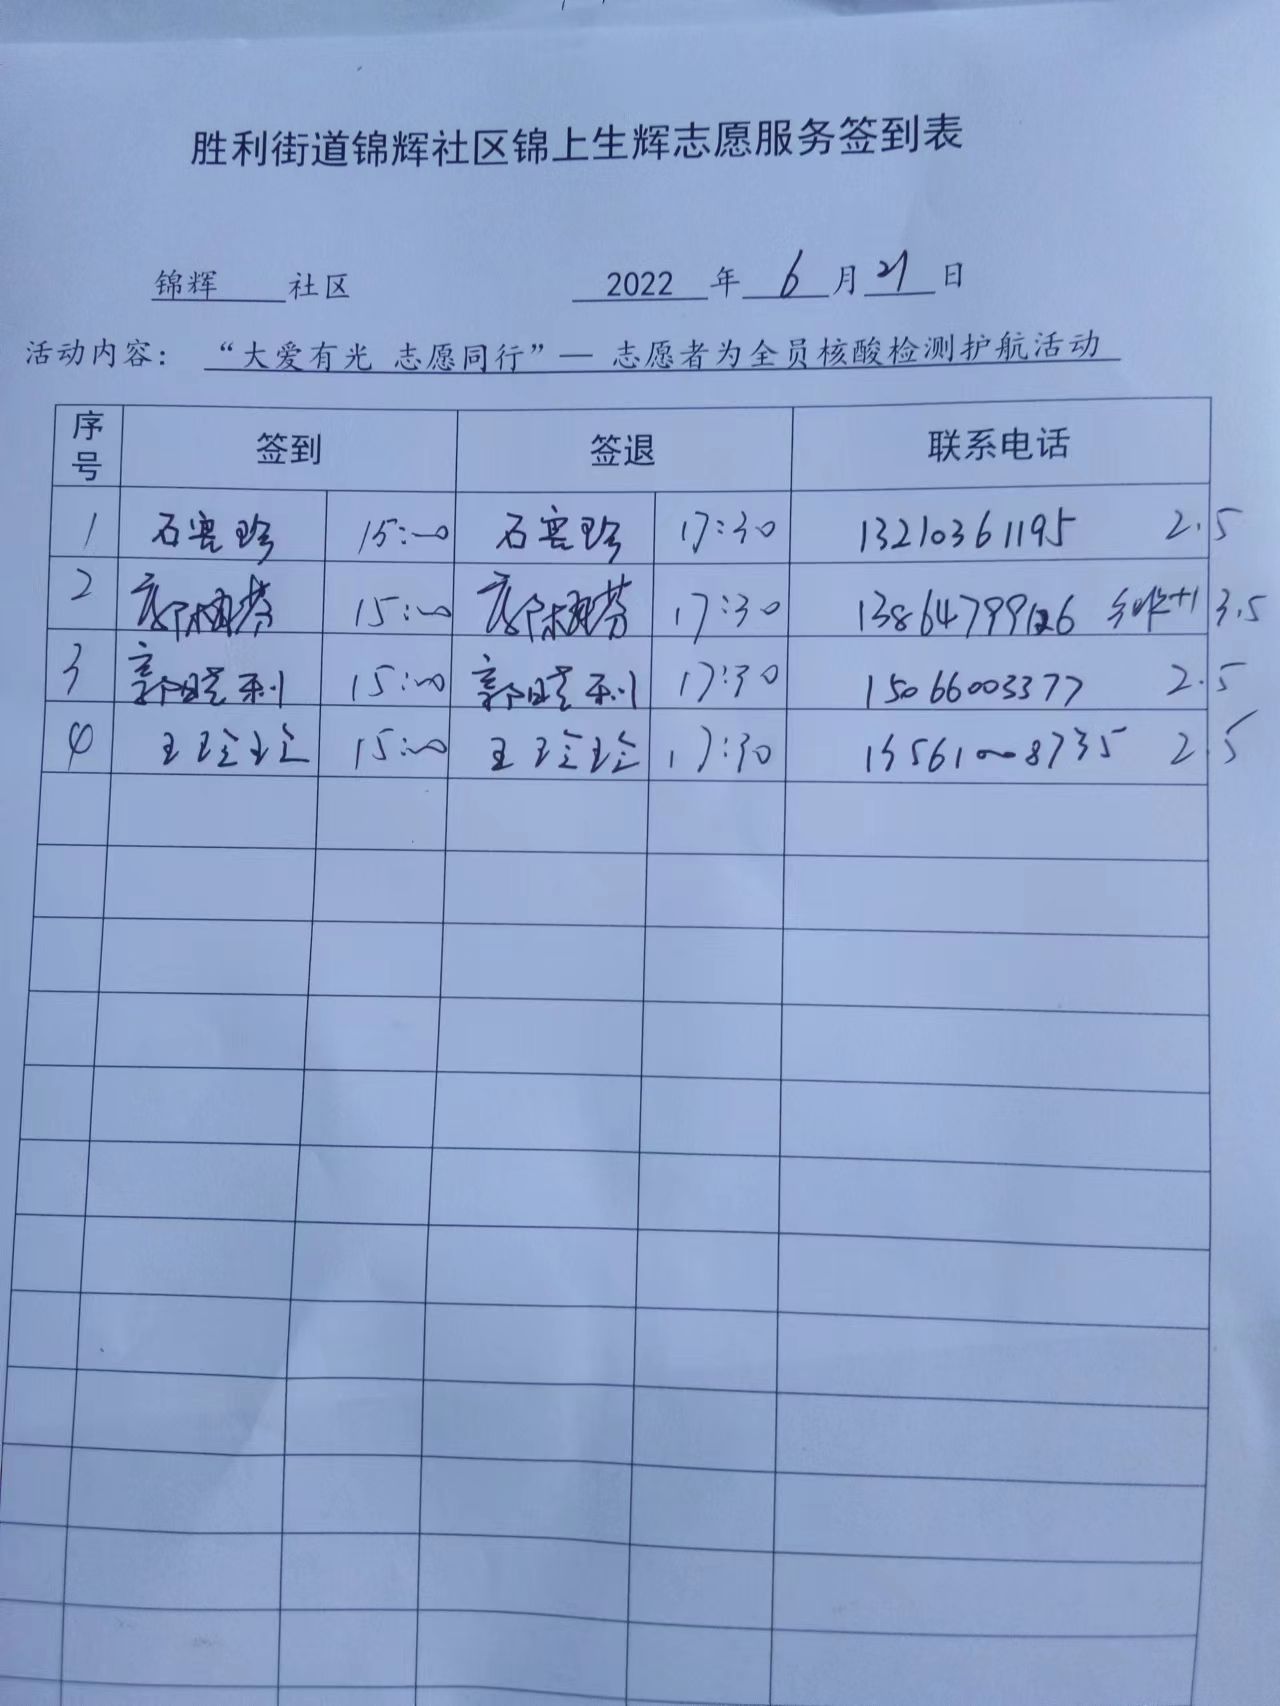 胜利街道锦辉社区锦上生辉志愿服务签到表
锦辉 社区 2022 年 6 月 21 日
活动内容： “大爱有光 志愿同行”— 志愿者为全员核酸检测护航活动
序号 签到 签退 联系电话
1 石 珍 15:00 石 珍 17:30 13210361195 2.5
2 15:00 17:30 +1 3.5
3 郭晓利 15:00 郭晓利 17:30 15066003377 2.5
4 王玲玲 15:00 王玲玲 17:30 15561008735 2.5